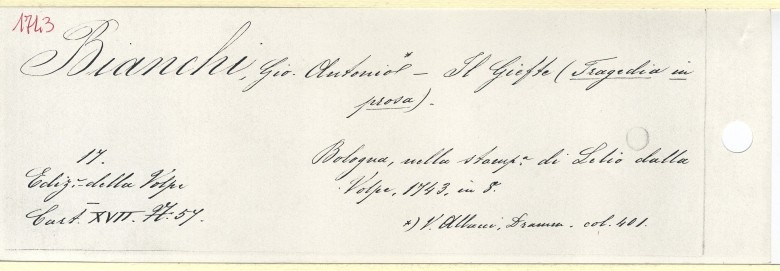 1743
Bianchi, Gio. Antonio* – Il Giefte (Tragedia in
prosa).
17.
Ediz.e della Volpe
Cart. XVII. 57.
Bologna, nella stamp.a di Lelio dalla
Volpe, 1743, in 8.
*) V. Allacci, Dramm. col. 401.